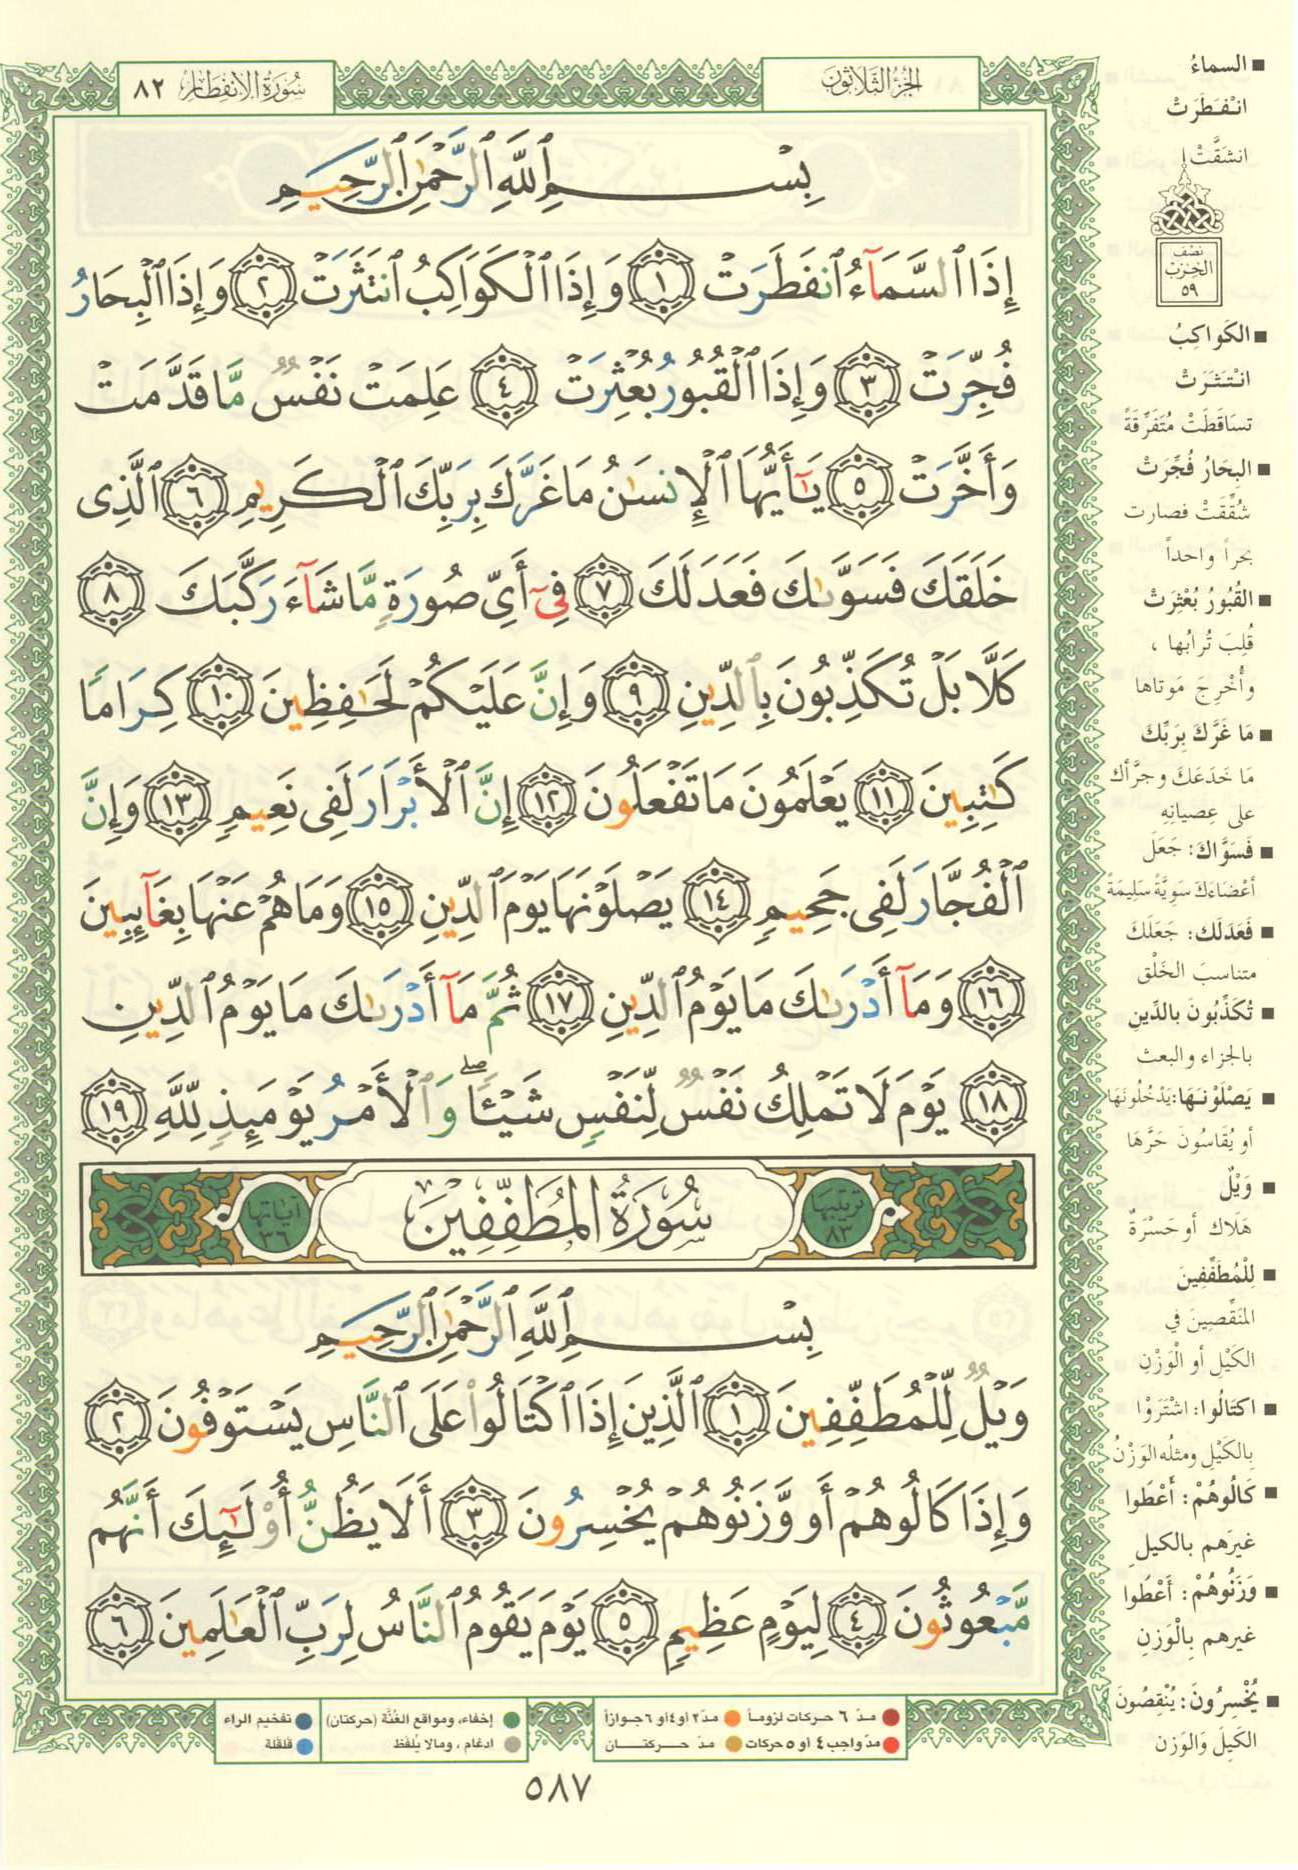 سُورَةُ الانفِطار ٨٢
الجُزءُ الثَّلَاثُونَ
بِسْمِ ٱللَّهِ ٱلرَّحْمَٰنِ ٱلرَّحِيمِ
إِذَا ٱلسَّمَآءُ ٱنفَطَرَتْ ١ وَإِذَا ٱلْكَوَاكِبُ ٱنتَثَرَتْ ٢ وَإِذَا ٱلْبِحَارُ
فُجِّرَتْ ٣ وَإِذَا ٱلْقُبُورُ بُعْثِرَتْ ٤ عَلِمَتْ نَفْسٌ مَّا قَدَّمَتْ
وَأَخَّرَتْ ٥ يَٰٓأَيُّهَا ٱلْإِنسَٰنُ مَا غَرَّكَ بِرَبِّكَ ٱلْكَرِيمِ ٦ ٱلَّذِى
خَلَقَكَ فَسَوَّىٰكَ فَعَدَلَكَ ٧ فِىٓ أَىِّ صُورَةٍ مَّا شَآءَ رَكَّبَكَ ٨
كَلَّا بَلْ تُكَذِّبُونَ بِٱلدِّينِ ٩ وَإِنَّ عَلَيْكُمْ لَحَٰفِظِينَ ١٠ كِرَامًا
كَٰتِبِينَ ١١ يَعْلَمُونَ مَا تَفْعَلُونَ ١٢ إِنَّ ٱلْأَبْرَارَ لَفِى نَعِيمٍ ١٣ وَإِنَّ
ٱلْفُجَّارَ لَفِى جَحِيمٍ ١٤ يَصْلَوْنَهَا يَوْمَ ٱلدِّينِ ١٥ وَمَا هُمْ عَنْهَا بِغَآئِبِينَ
١٦ وَمَآ أَدْرَىٰكَ مَا يَوْمُ ٱلدِّينِ ١٧ ثُمَّ مَآ أَدْرَىٰكَ مَا يَوْمُ ٱلدِّينِ
١٨ يَوْمَ لَا تَمْلِكُ نَفْسٌ لِّنَفْسٍ شَيْـًٔا ۖ وَٱلْأَمْرُ يَوْمَئِذٍ لِّلَّهِ ١٩
ترتيبها ٨٣
سُورَةُ المُطَفِّفِينَ
آياتها ٣٦
بِسْمِ ٱللَّهِ ٱلرَّحْمَٰنِ ٱلرَّحِيمِ
وَيْلٌ لِّلْمُطَفِّفِينَ ١ ٱلَّذِينَ إِذَا ٱكْتَالُوا۟ عَلَى ٱلنَّاسِ يَسْتَوْفُونَ ٢
وَإِذَا كَالُوهُمْ أَو وَّزَنُوهُمْ يُخْسِرُونَ ٣ أَلَا يَظُنُّ أُو۟لَٰٓئِكَ أَنَّهُم
مَّبْعُوثُونَ ٤ لِيَوْمٍ عَظِيمٍ ٥ يَوْمَ يَقُومُ ٱلنَّاسُ لِرَبِّ ٱلْعَٰلَمِينَ ٦
السماءُ
انْفَطَرَتْ
انشَقَّتْ
نصف
الحِزب
٥٩
الكَواكِبُ
انْتَثَرَتْ
تساقَطَتْ مُتَفَرِّقَةً
البِحَارُ فُجِّرَتْ
شُقِّقَتْ فصارت
بحراً واحداً
القُبُورُ بُعْثِرَتْ
قُلِبَ تُرابُها ،
وأُخْرِجَ مَوتاها
مَا غَرَّكَ بِرَبِّكَ
مَا خَدَعَكَ وجرَّأك
على عِصيانِهِ
فَسَوَّاكَ: جَعَلَ
أعْضاءَكَ سَوِيَّةً سَلِيمَةً
فَعَدَلَك: جَعَلَكَ
متناسبَ الخَلْق
تُكَذِّبُونَ بالدِّينِ
بالجزاء والبعث
يَصْلَوْنَهَا: يَدْخُلُونَهَا
أو يُقَاسُونَ حَرَّهَا
وَيْلٌ
هَلَاك أو حَسْرَةٌ
لِلْمُطَفِّفِينَ
المُنَقِّصِينَ في
الكَيْل أو الْوَزْنِ
اكتَالُوا: اشْتَرَوْا
بِالكَيْلِ ومثلُه الوَزْنُ
كَالُوهُمْ: أَعْطَوا
غيرَهم بالكيلِ
وَزَنُوهُمْ: أَعْطَوا
غيرهم بِالْوَزنِ
يُخْسِرُونَ: يُنْقِصُونَ
الكَيلَ وَالوَزن
مدّ ٦ حركات لزوماً
مدّ ٢ أو ٤ أو ٦ جوازاً
إخفاء، ومواقع الغُنَّة (حركتان)
تفخيم الراء
مدّ واجب ٤ أو ٥ حركات
مدّ حركتان
ادغام ، ومالا يُلفَظ
قلقلة
٥٨٧